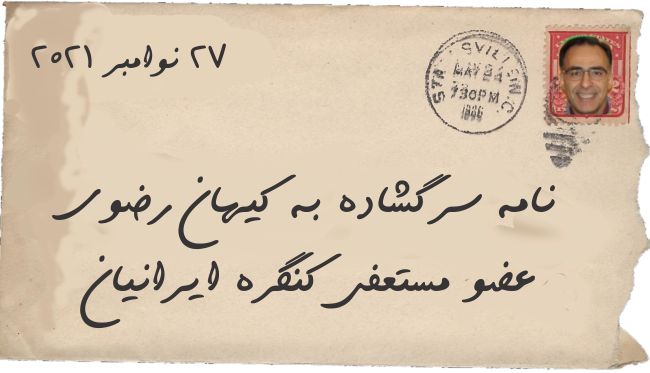 ۲۷ نوامبر ۲۰۲۱
MAY 24
7 30 PM
1886
نامه سرگشاده به کیهان رضوی
عضو مستعفی کنگره ایرانیان